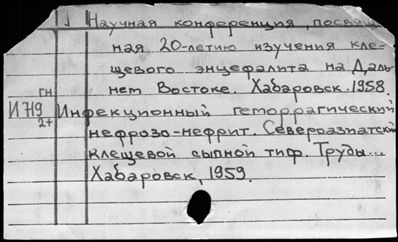 Научная конференция, посвящ
ная 20-летию изучения кле-
щевого энцефалита на Даль-
нем Востоке. Хабаровск. 1958.
гн
И 719 Инфекционный геморрагический
2+
нефрозо-нефрит. Североазиатский
клещевой сыпной тиф. Труды...
Хабаровск, 1959.